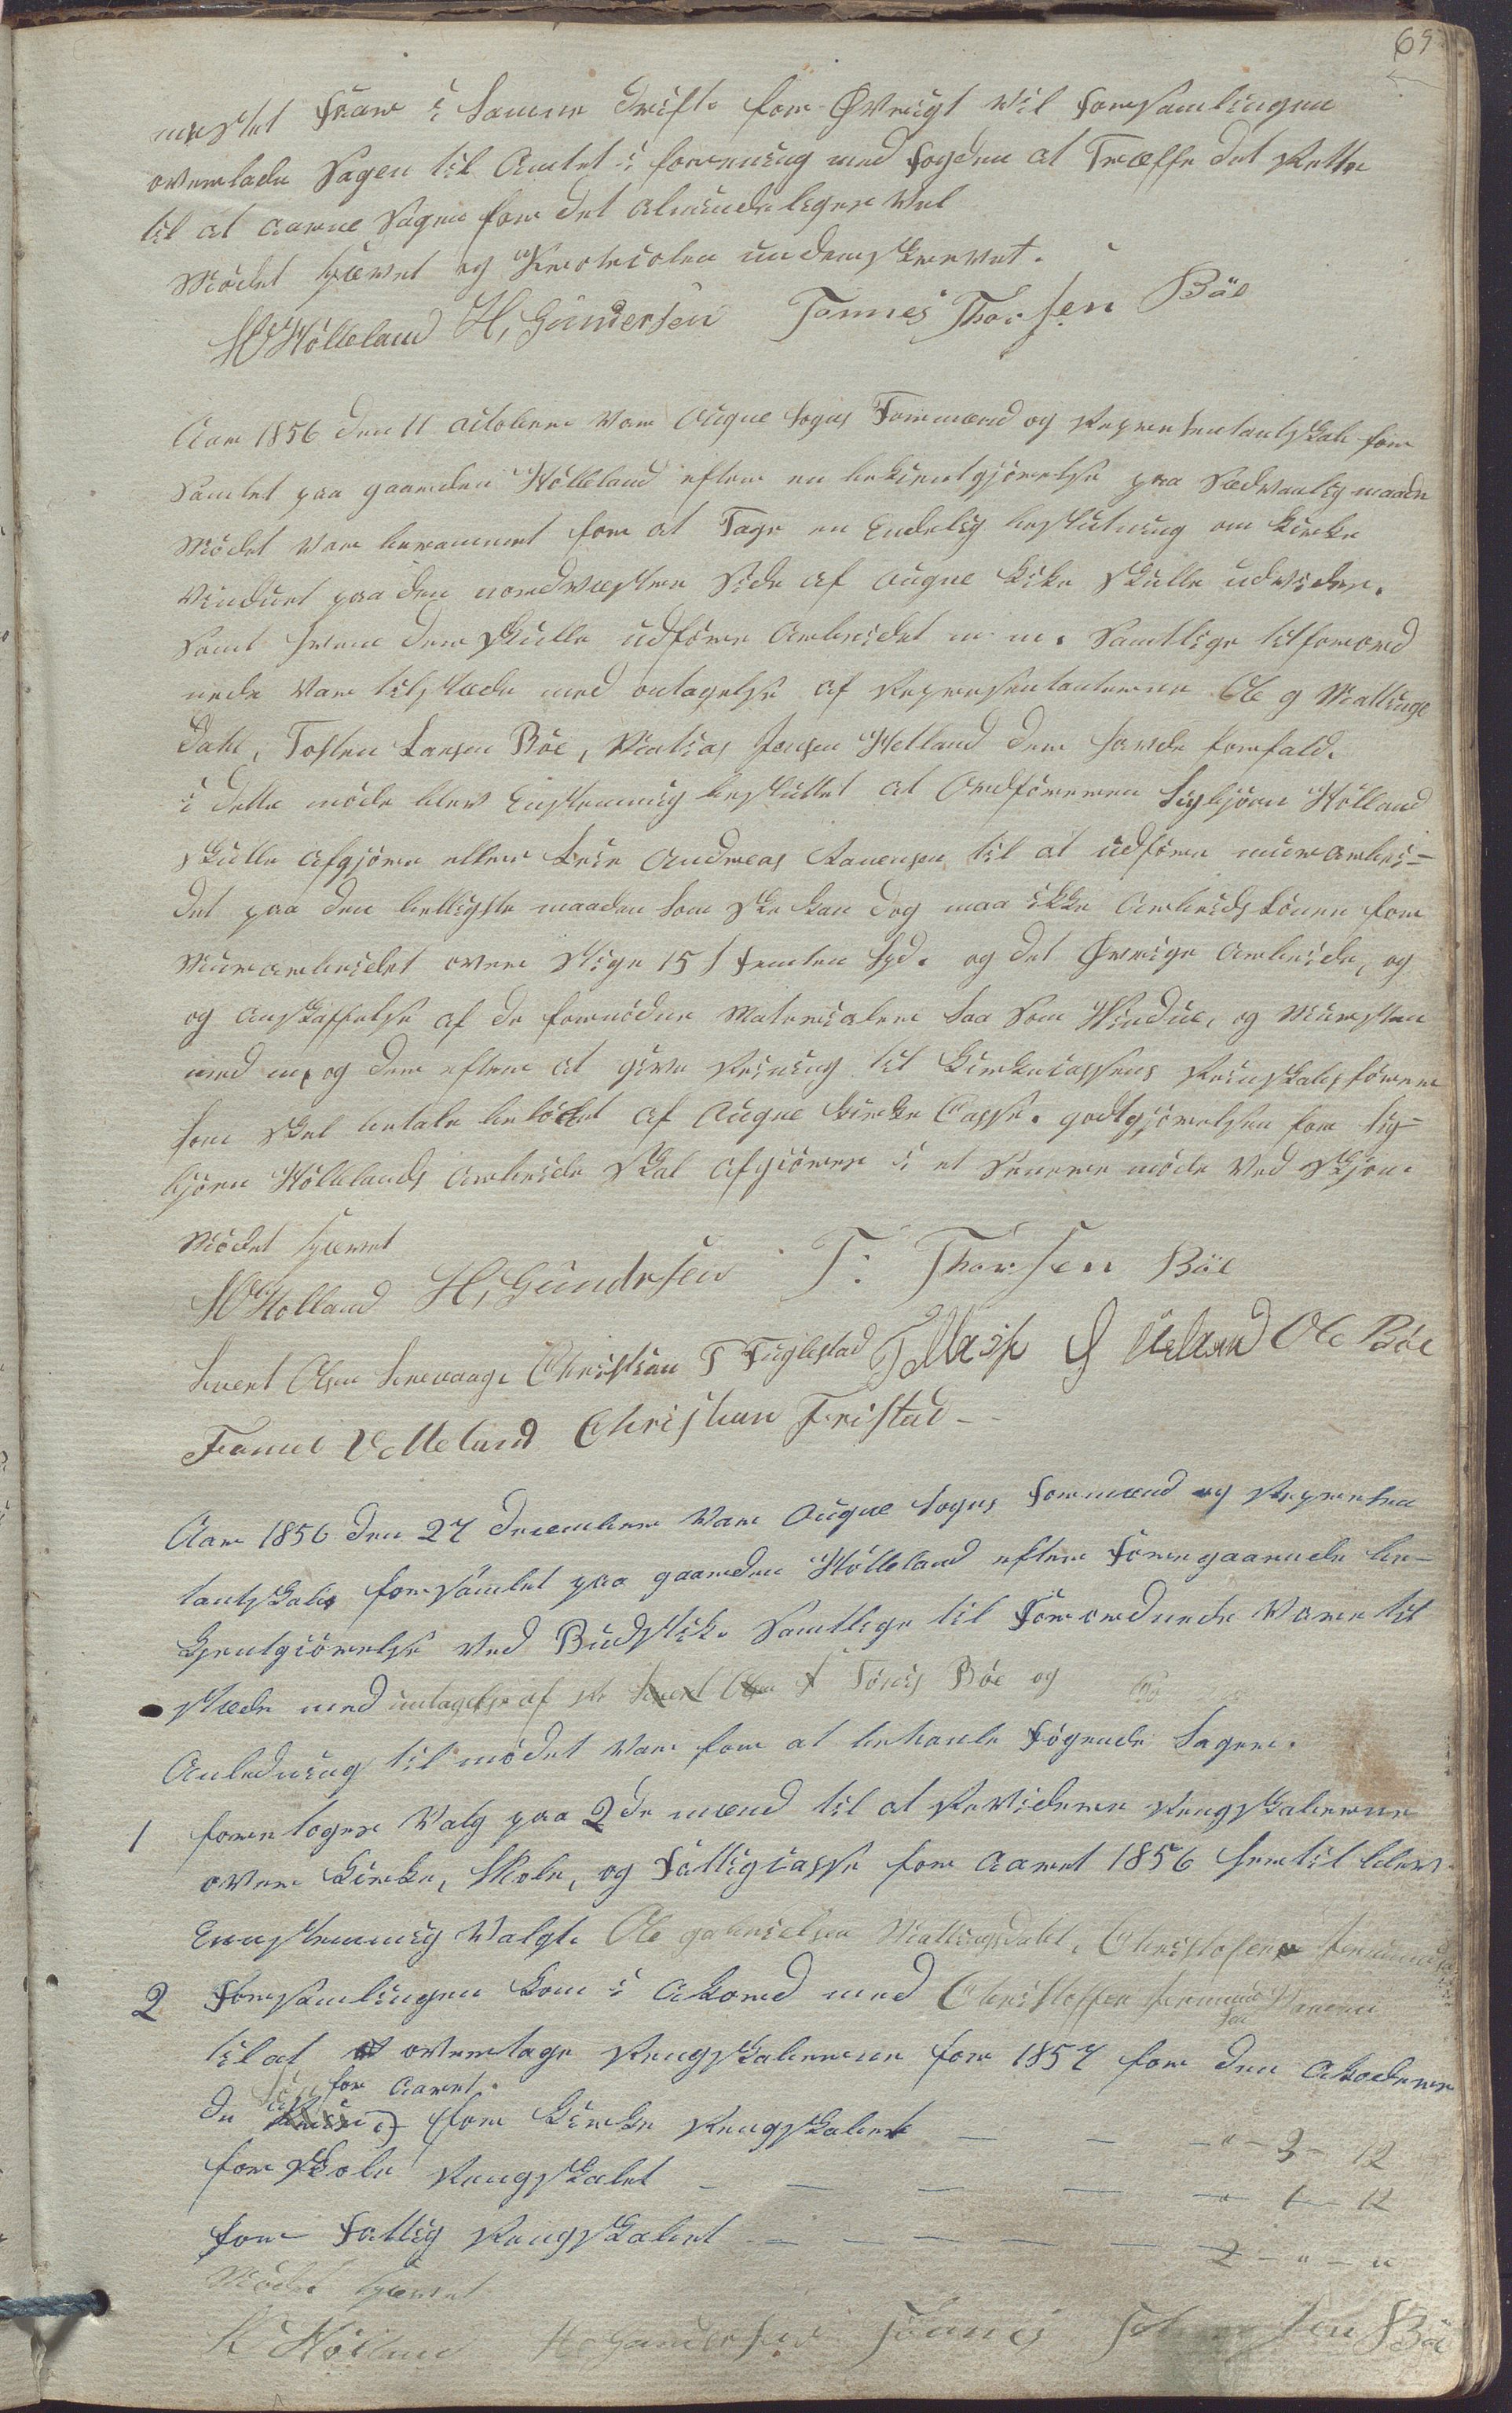 69
mestet Svar i Samme drift. for Øvrigt vil forsamlingen
overlade Sagen til Amtet i forening med fogden at Træffe det Rette
til at aarne Sagen for det almindeliges Vel
Mödet hævet og Protocolen underskrevet.
Hölleland H, Gundersen Tönnes Thorsen Böe
Aar 1856 den 11 october Var Ougne Sogns Formænd og Representantskab for
Samlet paa gaarden Hölleland efter en bekientgjörelse paa Sædvanlig maade
Mödet Var berammet for at Tage en Endelig beslutning om kirke
Vinduet paa den nordvestre Side af Ougne Kirke skulle udvides.
Samt hvem der skulle udföre Arbeidet m. m. Samtlige tilforord
nede Var tilstæde med ontagelse af Representanterne Ole g Matlings
dahl, Tosten Larsen Böe, Mathias Jonsen Hetland der havde forfald.
i dette möde blev Enstemmig besluttet at Ordföreren Sigbjörn Hölland
skulle afgjöre eller Leie Andreas til at udföre murarbei=
det paa den belligste maaden Som Ske kan dog maa ikke Arbeidslönen for
Murarbeidet over Stige 15 f femten Spd. og det Övrige Arbeide, og
og anskaffelse af de fornödne Materialer Saa Som Vindue, og Mursten
med m, og der efter at give Reining til Kirkecassens Reinskabsförer
som Skal betale belöbet af Ougne kirke Casse. godtgjörelsen for Sig=
björn Höllelands Arbeide Skal afgiöres i et Senere möde Ved Skjön.
Mödet hævet
Hölland H, Gundersen T. Thorsen Böe
Sivert Olsen Sirevaag. Christian T Fuglestad Ueland Ole Böe
Christian Fristad
Aar 1856 den 27 december Var Ougne Sogns formænd og Represen
tantskab, forsamlet paa gaarden Hölleland efter Föregaaende be=
kjentgiörelse Ved Budstik. Samtlige til Forordnede Vare til
stæde med untagelse af Tönes Böe og
Anledning til mödet Var for at behanle Fögende Sager.
1 foretoges Valg paa 2de mænd til at Revidere Rengskaberne
over kirke, Skole, og Fattigcasse for Aaret 1856 hertil blev
Enstemmig Valgt. Ole gabrielsen Matlingsdahl, Christofer
2 Forsamlingen kom i Akord med Christoffer
til at overtage Rengskaberne for 1857 for den Akodere
de Lön for Aaret. for kirke Rengskabet — — — " — 3 — 12
for Skole Rengskabet — — — — — " — 1 — 12
for Fattig Rengskabet — — — — — 2 — " — "
Mödet hævet
Hölland H Gundersen Tönnes Böe